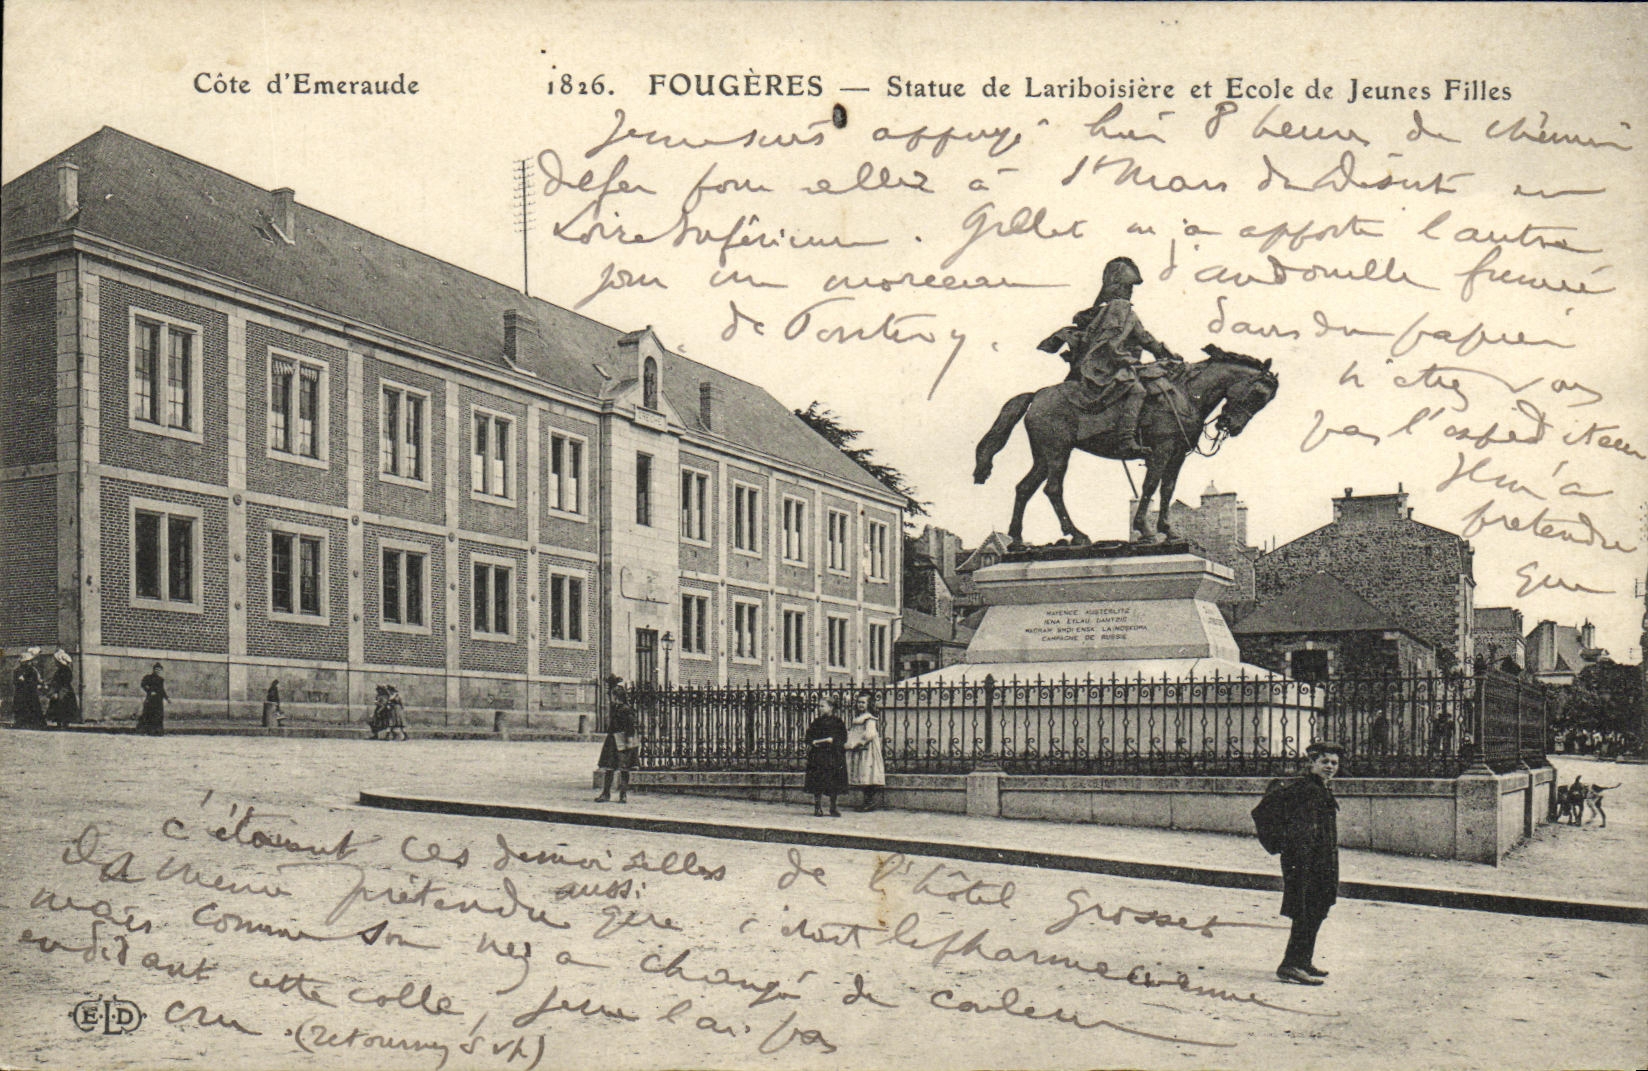 Côte d'Emeraude 1826. FOUGÈRES — Statue de Lariboisière et Ecole de Jeunes Filles
Je me suis appuyé hier 8 heures de chemin
de fer pour aller à St Mars du Désert en
Loire Inférieure. Gillet m'a apporté l'autre
jour un morceau d'andouille fumée
de Pontivy. dans du papier
n'êtes vous
pas l'expéditeur
Il m'a
prétendu
que
c'étaient ces demoiselles de l'hôtel Grosset
Il a même prétendu aussi que c'était la pharmacienne
mais comme son nez a changé de couleur
en disant cette colle, je ne l'ai pas
cru. (retournez S.V.P.)
MAYENCE AUSTERLITZ
IENA EYLAU DANTZIG
WAGRAM SMOLENSK LA MOSKOWA
CAMPAGNE DE RUSSIE
ELD